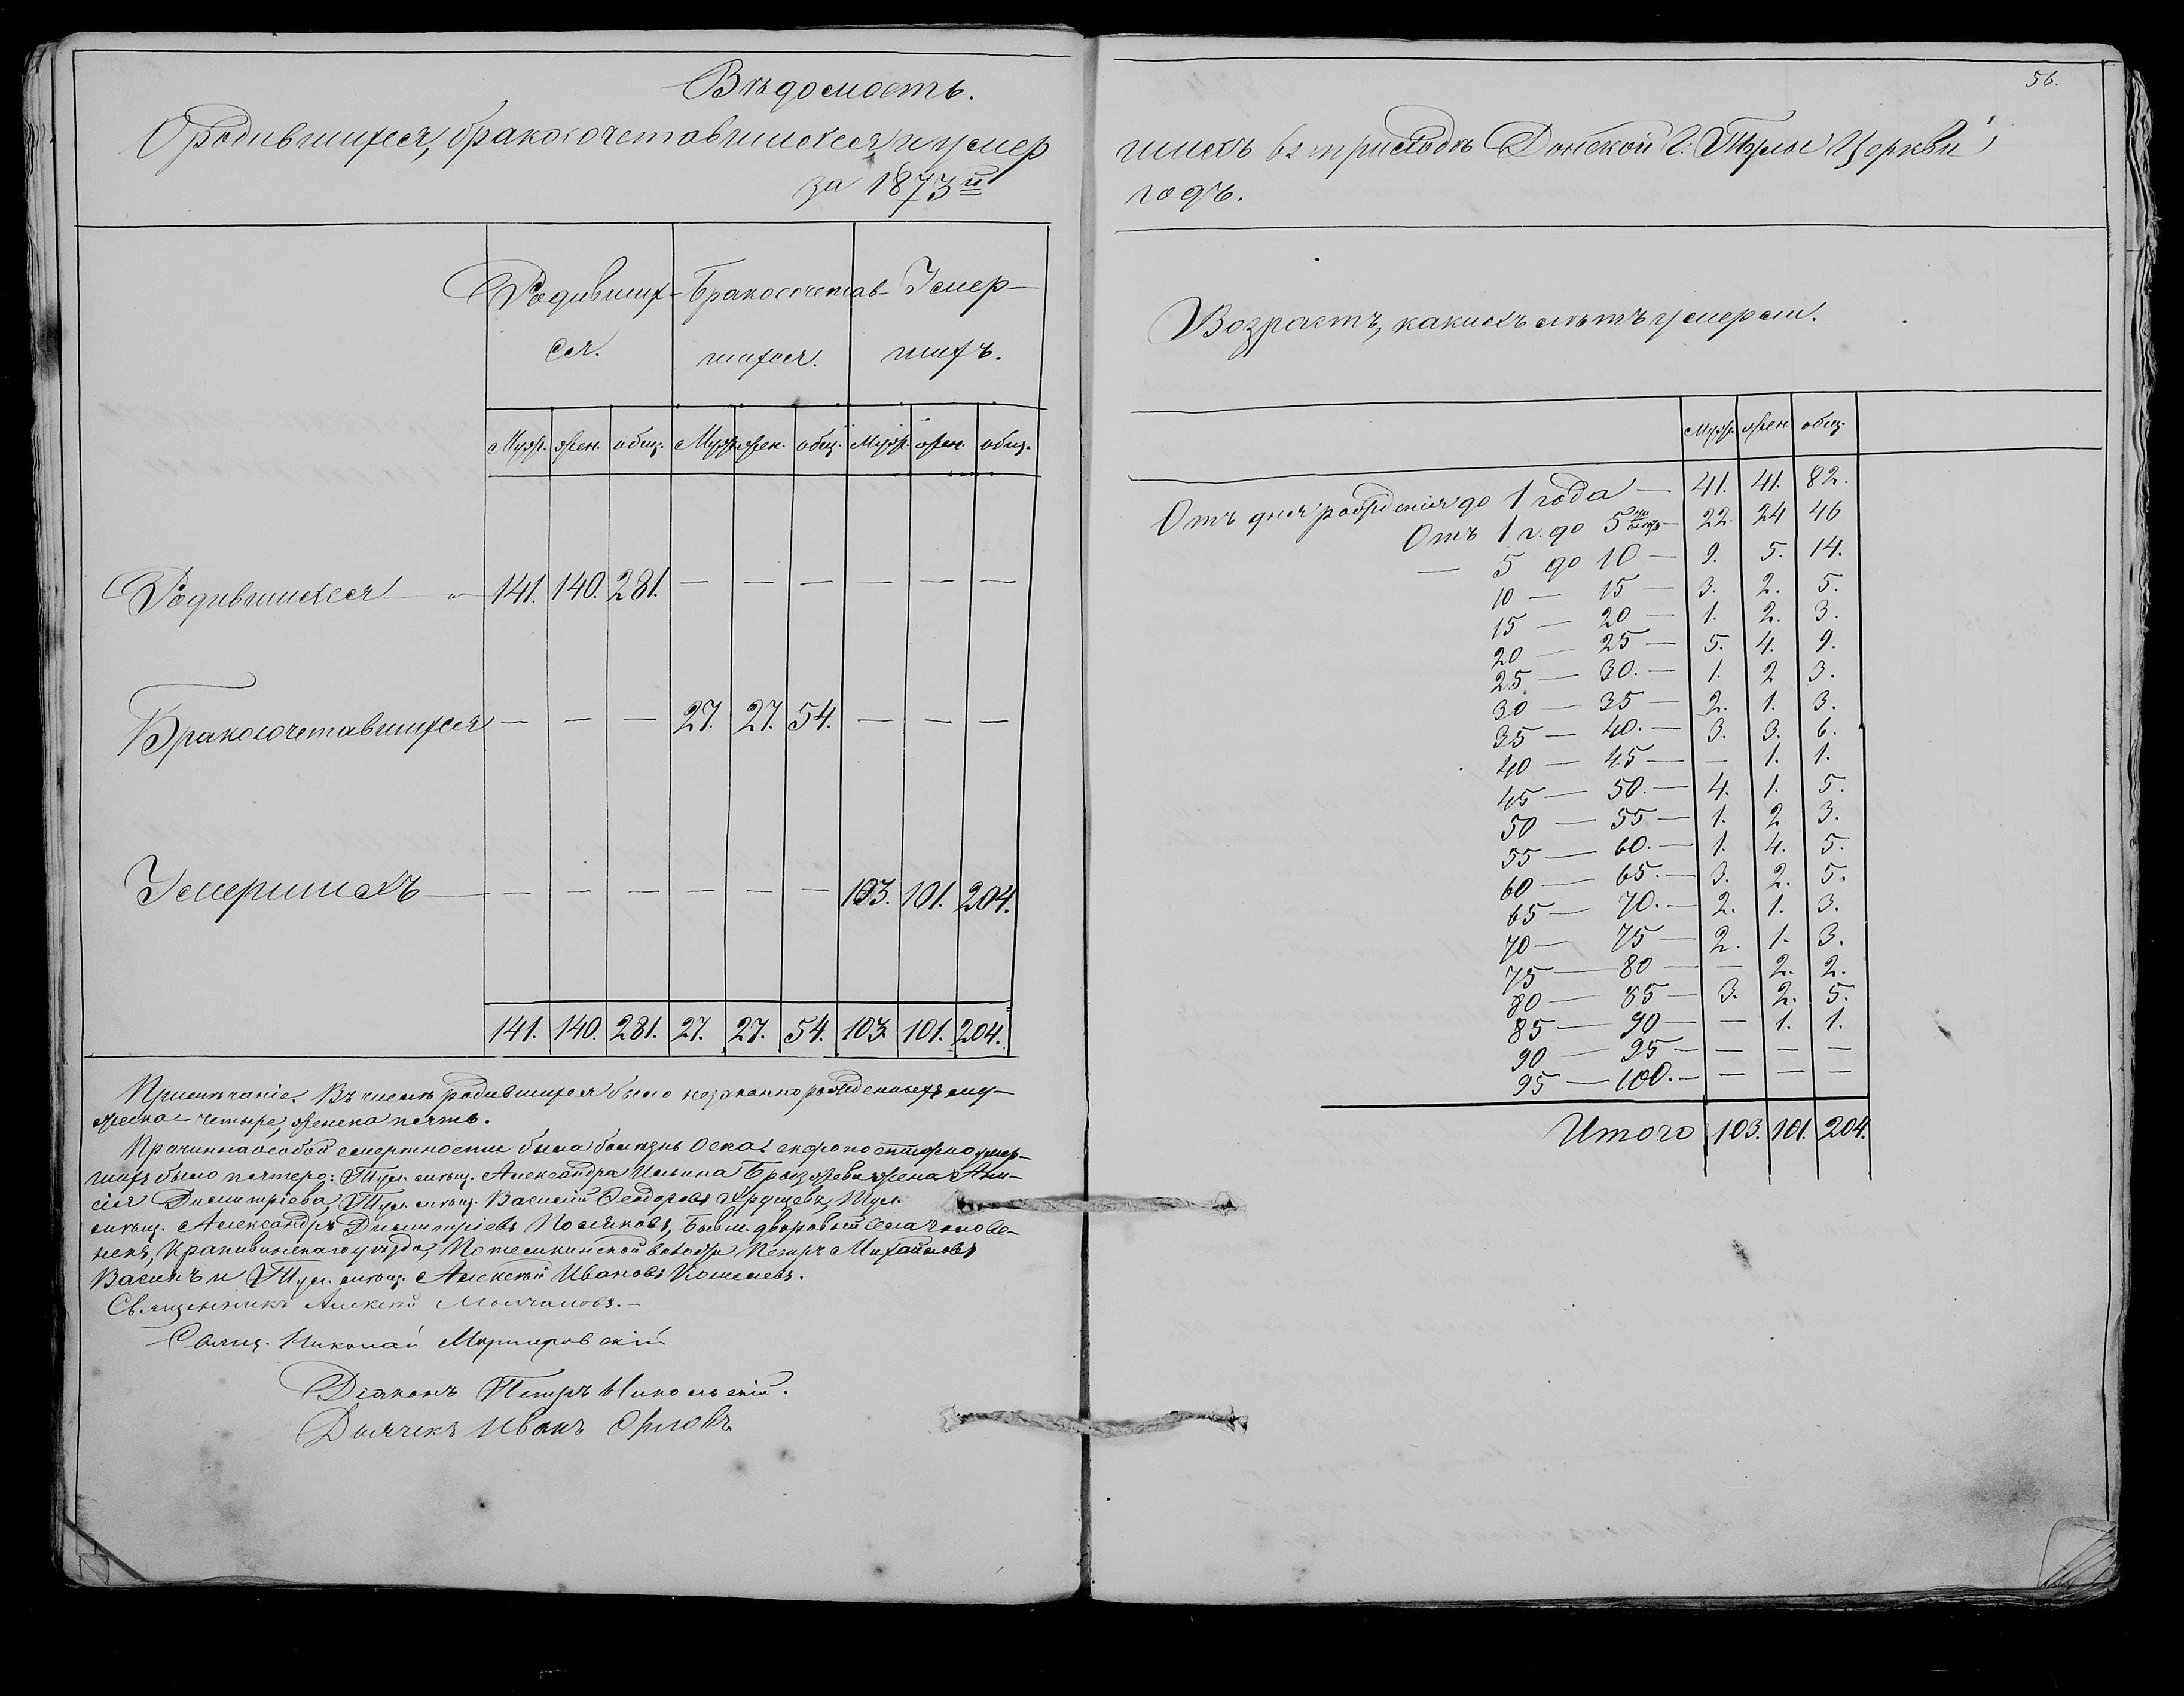 Вѣдомость.
О родившихся, бракосочетавшихся и умер
за 1873й
Родивших- Бракосочетав- Умер-
ся. шихся. шихъ.
Муж. жен. общ. Муж. жен. общ. Муж. жен. общ.
Родившихся — 141. 140. 281. — — — — — —
Бракосочетавшихся — — — 27. 27. 54. — — —
Умершихъ — — — — — — — 103. 101. 204.
141. 140. 281. 27. 27. 54. 103 101. 204.
Примѣчаніе. Въ числѣ родившихся было незаконнорожденныхъ му-
жеска – четыре, женска пять.
Причиною особой смертности была болѣзнь Оспа. скоропостижно умер-
шихъ было пятеро: Тул. мѣщ. Александра Ильина Брызжева жена Ани-
сія Димитріева, Тул. мѣщ. Василій Ѳеодоровъ Хрущевъ, Тул.
мѣщ. Александръ Димитріевъ Поляковъ, Бывш. дворовый села
Крапивинскаго уѣзда, Петръ Михайловъ
Васинъ и Тул. мѣщ. Алексѣй Ивановъ Кошелевъ.
Священникъ Алексѣй Молчановъ.—
Свящ. Николай
Діаконъ Петръ Никольскій.
Дьячекъ Иванъ Орловъ
56.
шихъ въ приходѣ Донской г. Тулы Церкви
годъ.
Возрастъ, какихъ лѣтъ умерли.
Муж. жен. общ.
Отъ дня рожденія до 1 года — 41. 41. 82.
Отъ 1 г. до 5ти лѣтъ — 22. 24 46
— 5 до 10 — 9. 5. 14.
10 — 15 — 3. 2. 5.
15 — 20 — 1. 2. 3.
20 — 25 — 5. 4. 9.
25 — 30. — 1. 2 3.
30 — 35 — 2. 1. 3.
35 — 40. — 3. 3. 6.
40 — 45 — — 1. 1.
45 — 50. — 4. 1. 5.
50 — 55 — 1. 2 3.
55 — 60. — 1. 4. 5.
60 — 65. — 3. 2. 5.
65 — 70. — 2. 1. 3.
70 — 75 — 2. 1. 3.
75 — 80 — — 2. 2.
80 — 85 — 3. 2. 5.
85 — 90 — — 1. 1.
90 — 95 — — — —
95 — 100. — — — —
Итого 103. 101. 204.